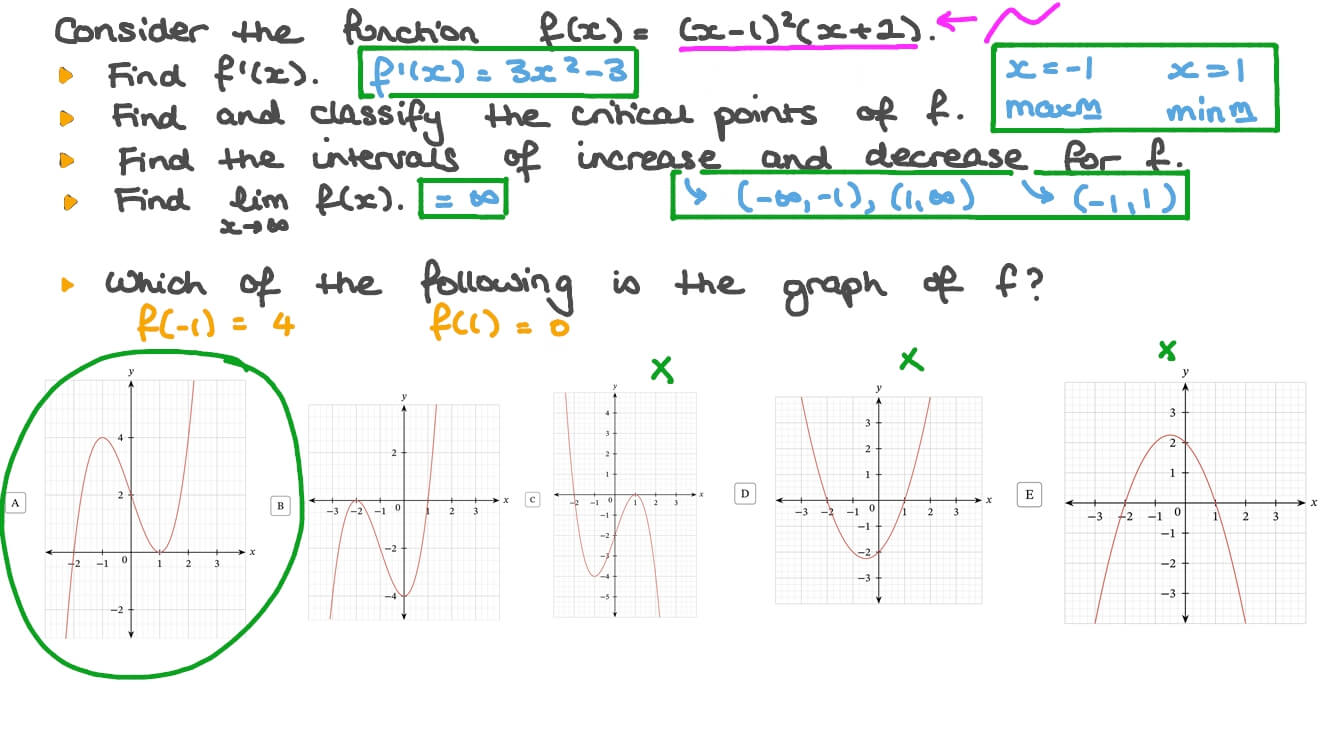 Consider the function f(x) = (x-1)²(x+2).
▸ Find f'(x). f'(x) = 3x² - 3
x = -1 x = 1
▸ Find and classify the critical points of f. maxm minm
▸ Find the intervals of increase and decrease for f.
▸ Find lim x→∞ f(x). = ∞ ↘ (-∞,-1), (1,∞) ↘ (-1,1)
▸ Which of the following is the graph of f?
f(-1) = 4 f(1) = 0
x x x
A y x 4 2 0 -2 -2 -1 1 2 3
B y x 2 0 -2 -4 -3 -2 -1 1 2 3
C y x 4 3 2 1 0 -1 -2 -3 -4 -5 -2 -1 1 2 3
D y x 3 2 1 0 -1 -2 -3 -3 -2 -1 1 2 3
E y x 3 2 1 0 -1 -2 -3 -3 -2 -1 1 2 3